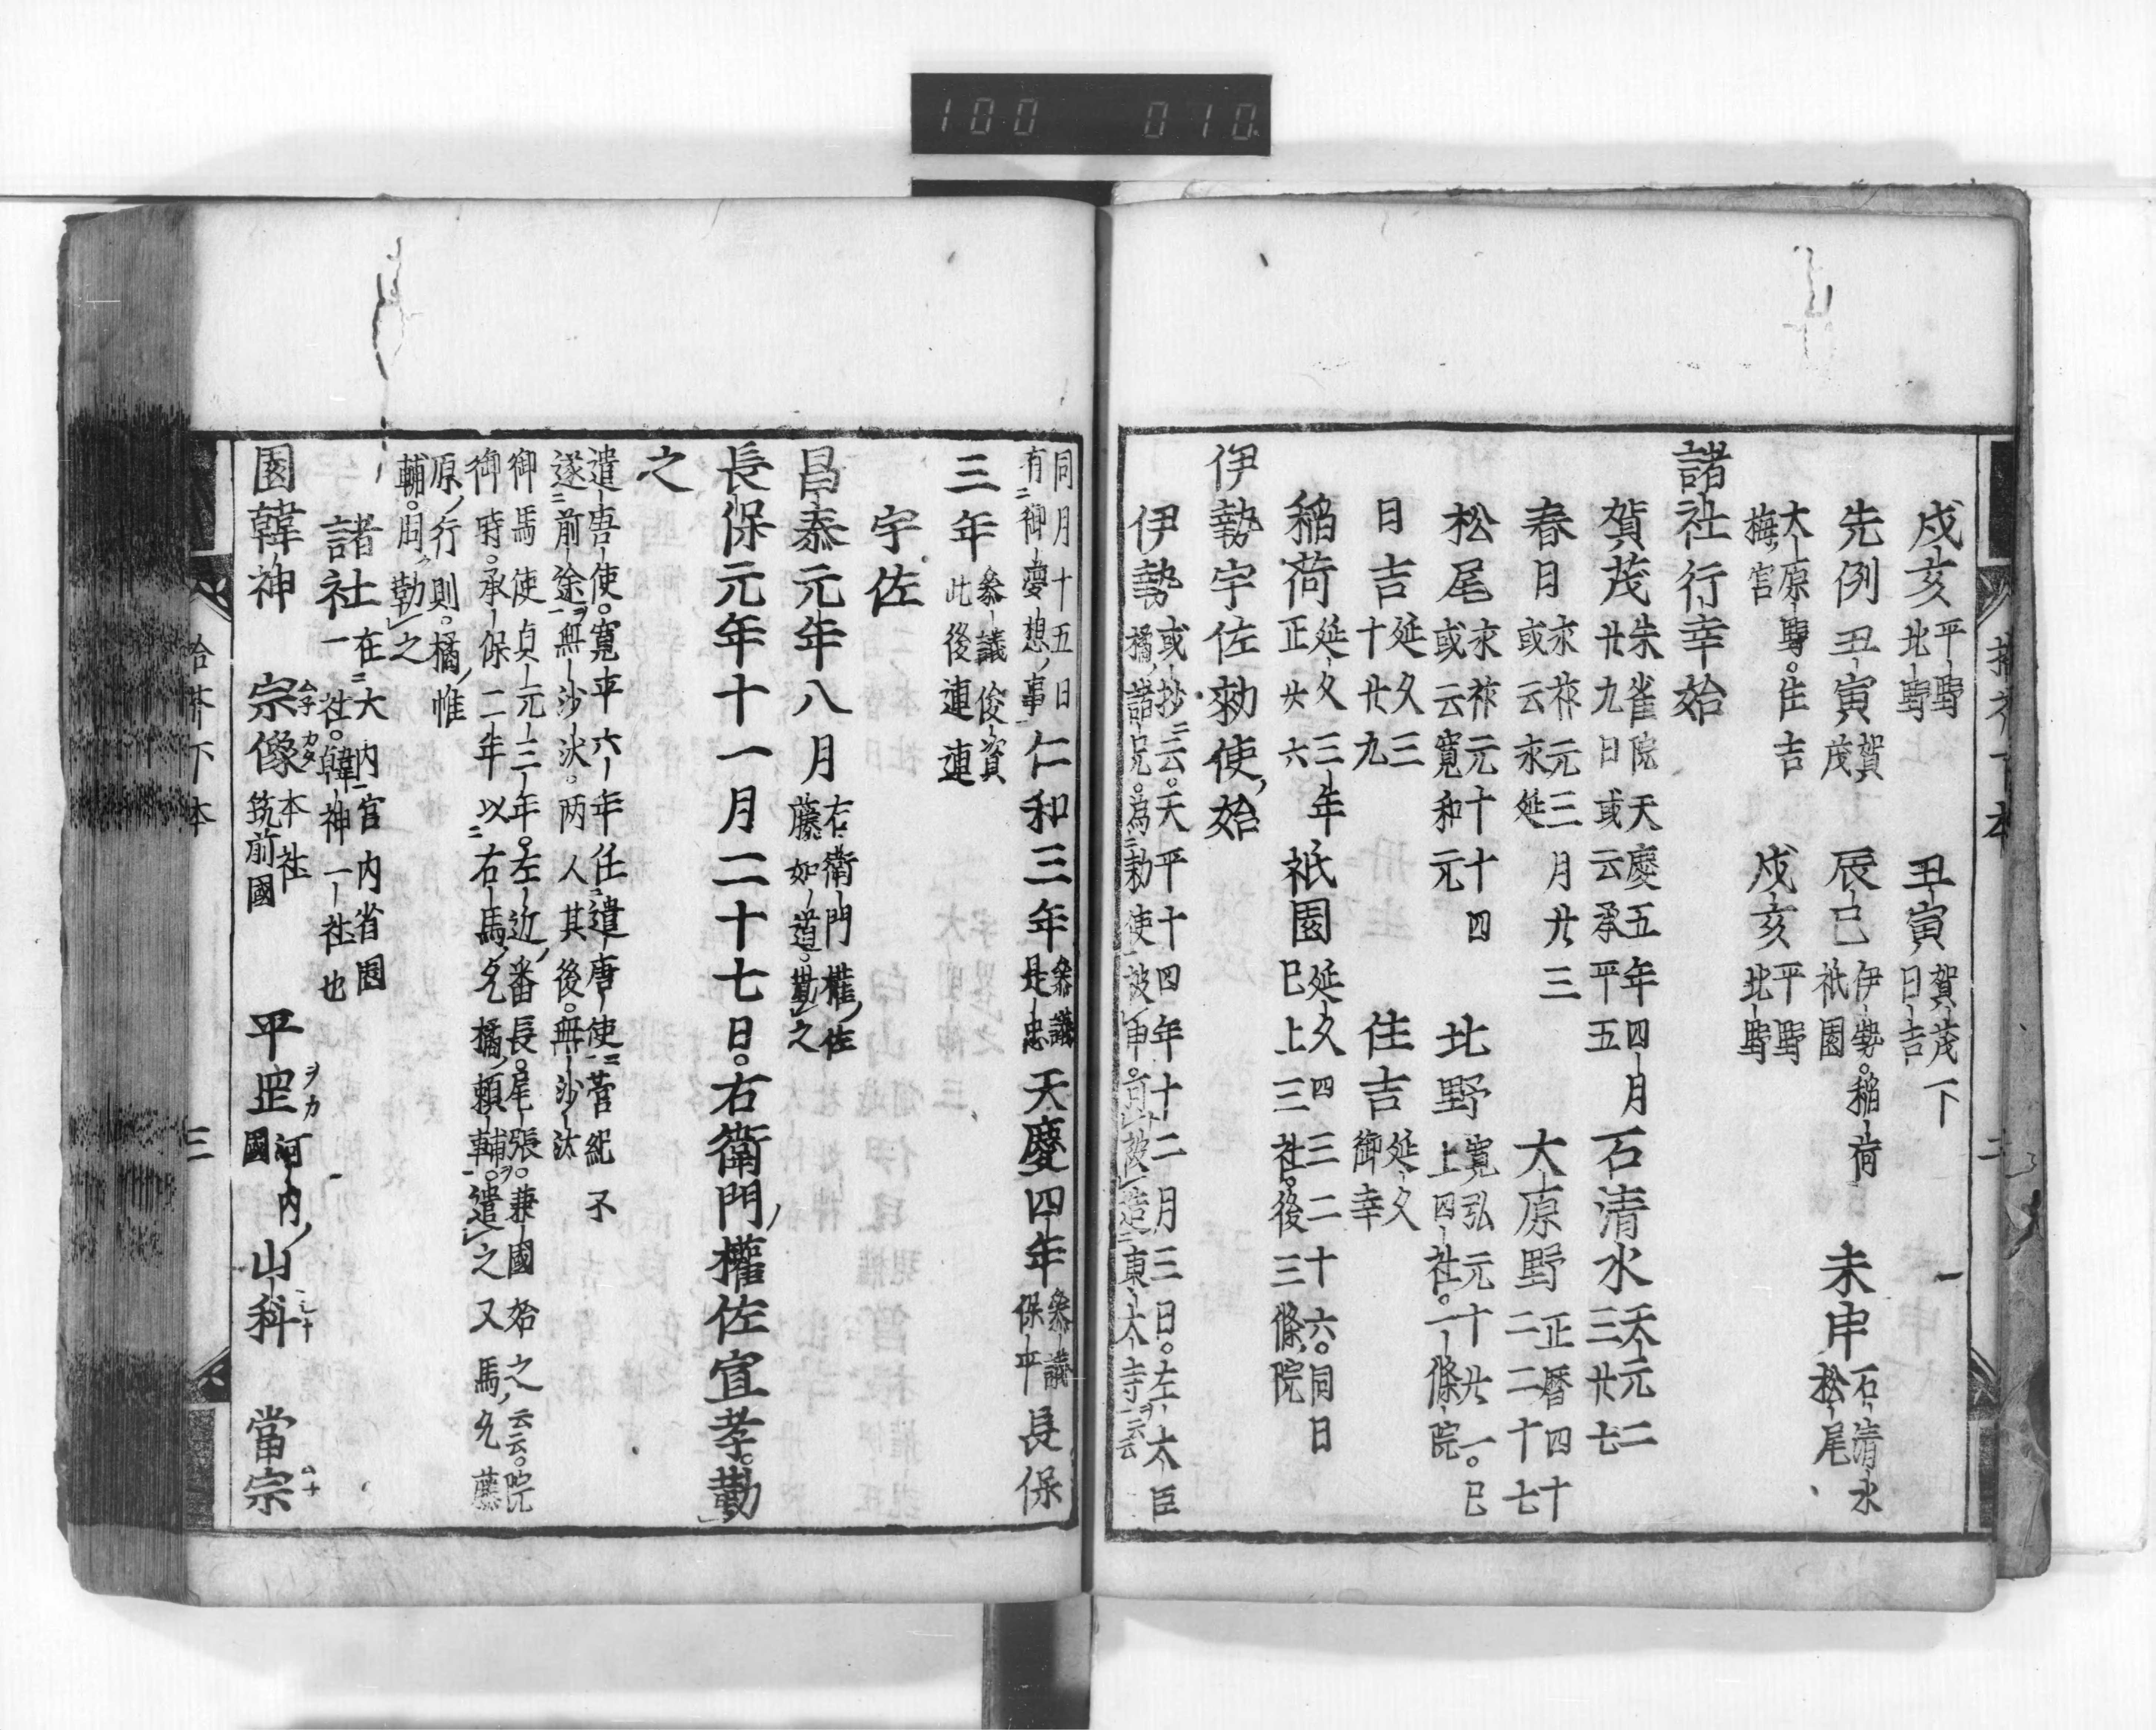 100 010
戌亥 平野 北野 丑寅 賀茂下 日吉
先例 丑寅 賀茂 辰巳 伊勢。稲荷 祇園 未申 石清水 松尾
大原野。住吉 梅宮 戌亥 平野 北野
諸社行幸始
賀茂 朱雀院天慶五年四月 廿九日或云承平五 石清水 天元二 三廿七
春日 永祚元三月廿三 或云永延 大原野 正暦四十 二二十七
松尾 永祚元十十四 或云寛和元 北野 寛弘元十廿一。已 上四社。一條院
日吉 延久三 十廿九 住吉 延久 御幸
稲荷 延久三年 正廿六 祇園 延久四三二十六。同日 已上三社。後三條院
伊勢宇佐勅使始
伊勢 或抄云。天平十四年十一二月三日。左大臣 橘諸兄。為勅使被申。可被造東大寺云云
同月十五日 有御夢想事 仁和三年 參議 是忠 天慶四年 參議 保平 長保
三年 參議俊賢 此後連連
宇佐
昌泰元年八月 右衛門權佐 藤如道。勤之
長保元年十一月二十七日。右衛門權佐宣孝。勤
之
遣唐使。寛平六年任遣唐使菅紀不
遂前途無沙汰。两人其後。無沙汰
御馬使貞元三年。左近番長。尾張。兼國始之云云。院
御時。承保二年以右馬允橘頼輔。遣之又馬允藤
原行則。橘惟
輔。同勤之
諸社 在大内宮内省園 一社。韓神一社也
園韓神 宗像 ムナカタ 本社 筑前國 平岡 ヲカ 河内國 山科 當宗
拾芥下本 二
拾芥下本 三